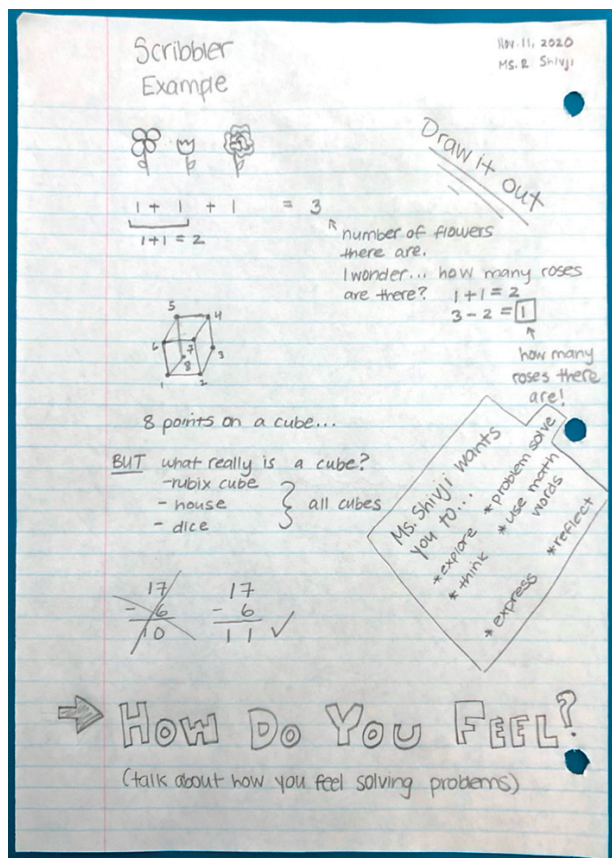 Scribbler
Example
Nov. 11, 2020
Ms. R Shivji
Draw it out
1 + 1 + 1 = 3
1+1 = 2
number of flowers
there are.
I wonder... how many roses
are there? 1+1=2
3-2=1
how many
roses there
are!
5
4
6
7
3
8
1
2
8 points on a cube...
BUT what really is a cube?
-rubix cube
- house
- dice
all cubes
Ms. Shivji wants
you to...
*explore
*think
*express
*problem solve
*use math
words
*reflect
17
- 6
10
17
- 6
11
HOW DO YOU FEEL?
(talk about how you feel solving problems)